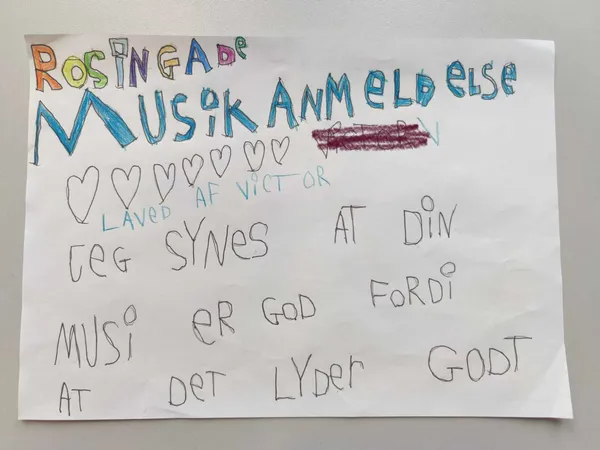 ROSiNGADe
MUSiK ANMeLDeLSe
LAVED AF ViCTOR
JeG SYNeS AT DiN
MUSi eR GOD FORDi
AT DeT LYDer GODT